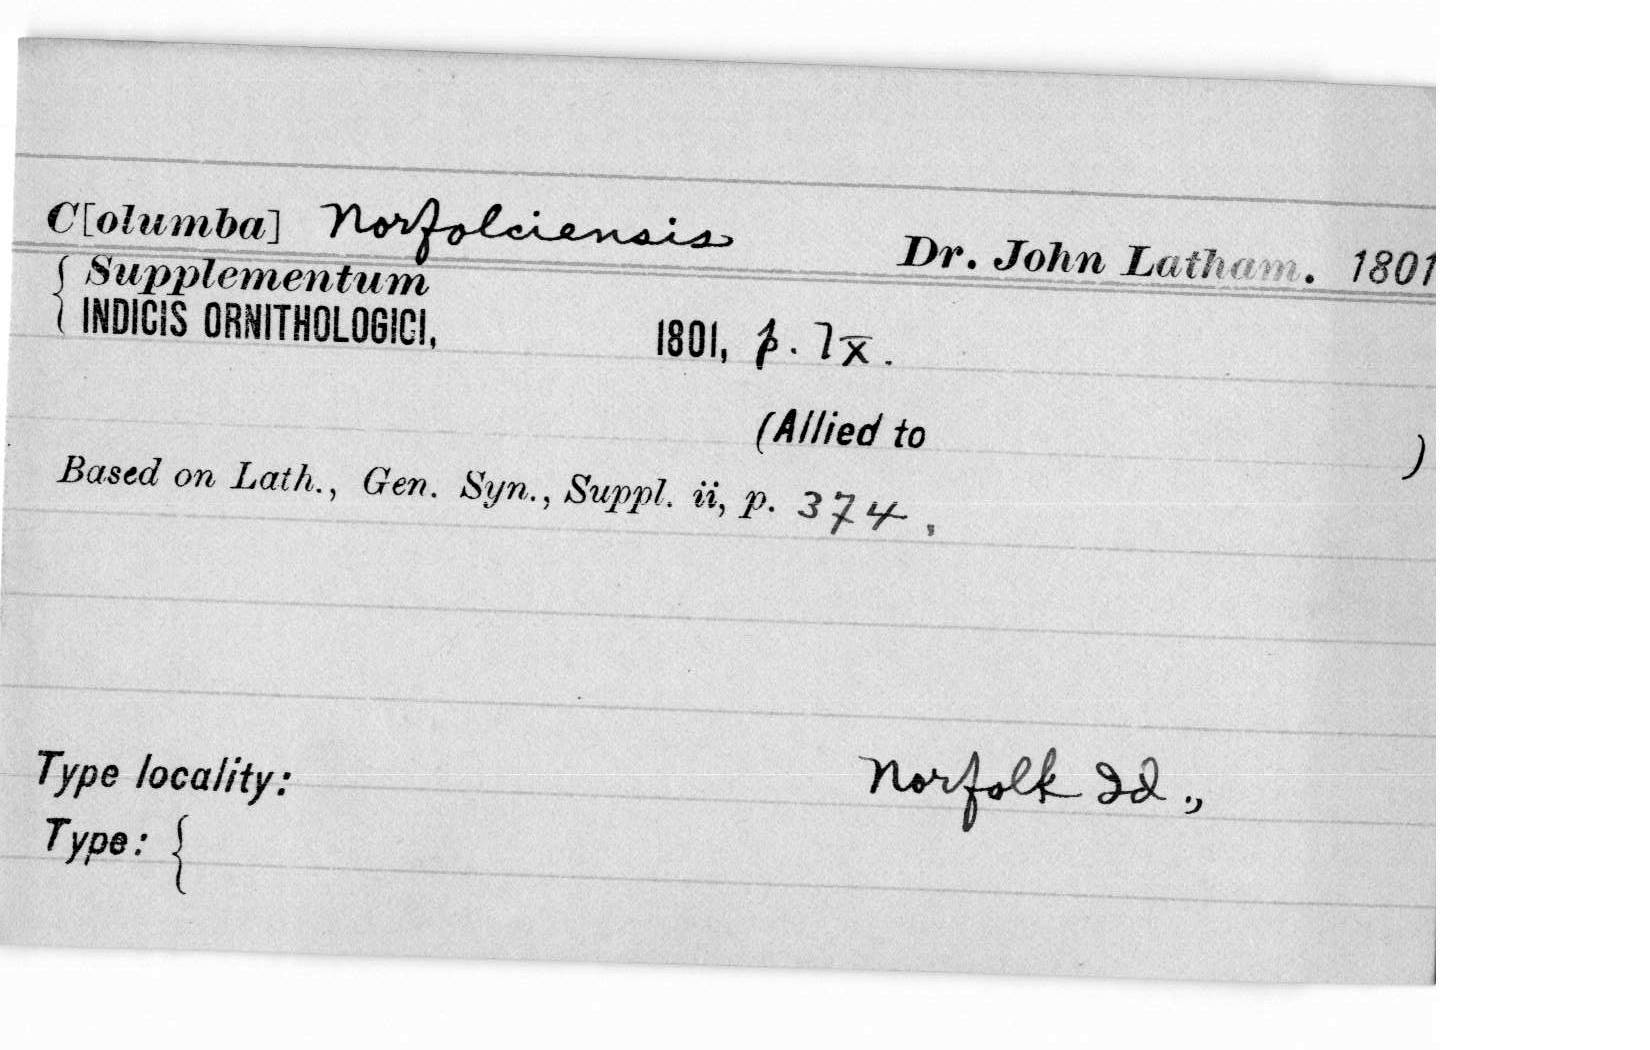 C[olumba] Norfolciensis Dr. John Latham. 1801
{ Supplementum
INDICIS ORNITHOLOGICI, 1801, p. lx.
(Allied to )
Based on Lath., Gen. Syn., Suppl. ii, p. 374,
Type locality: Norfolk Id.,
Type: {